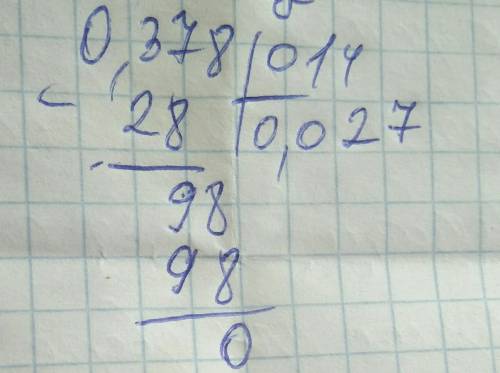 0,378 | 014
- 28 | 0,027
98
98
0